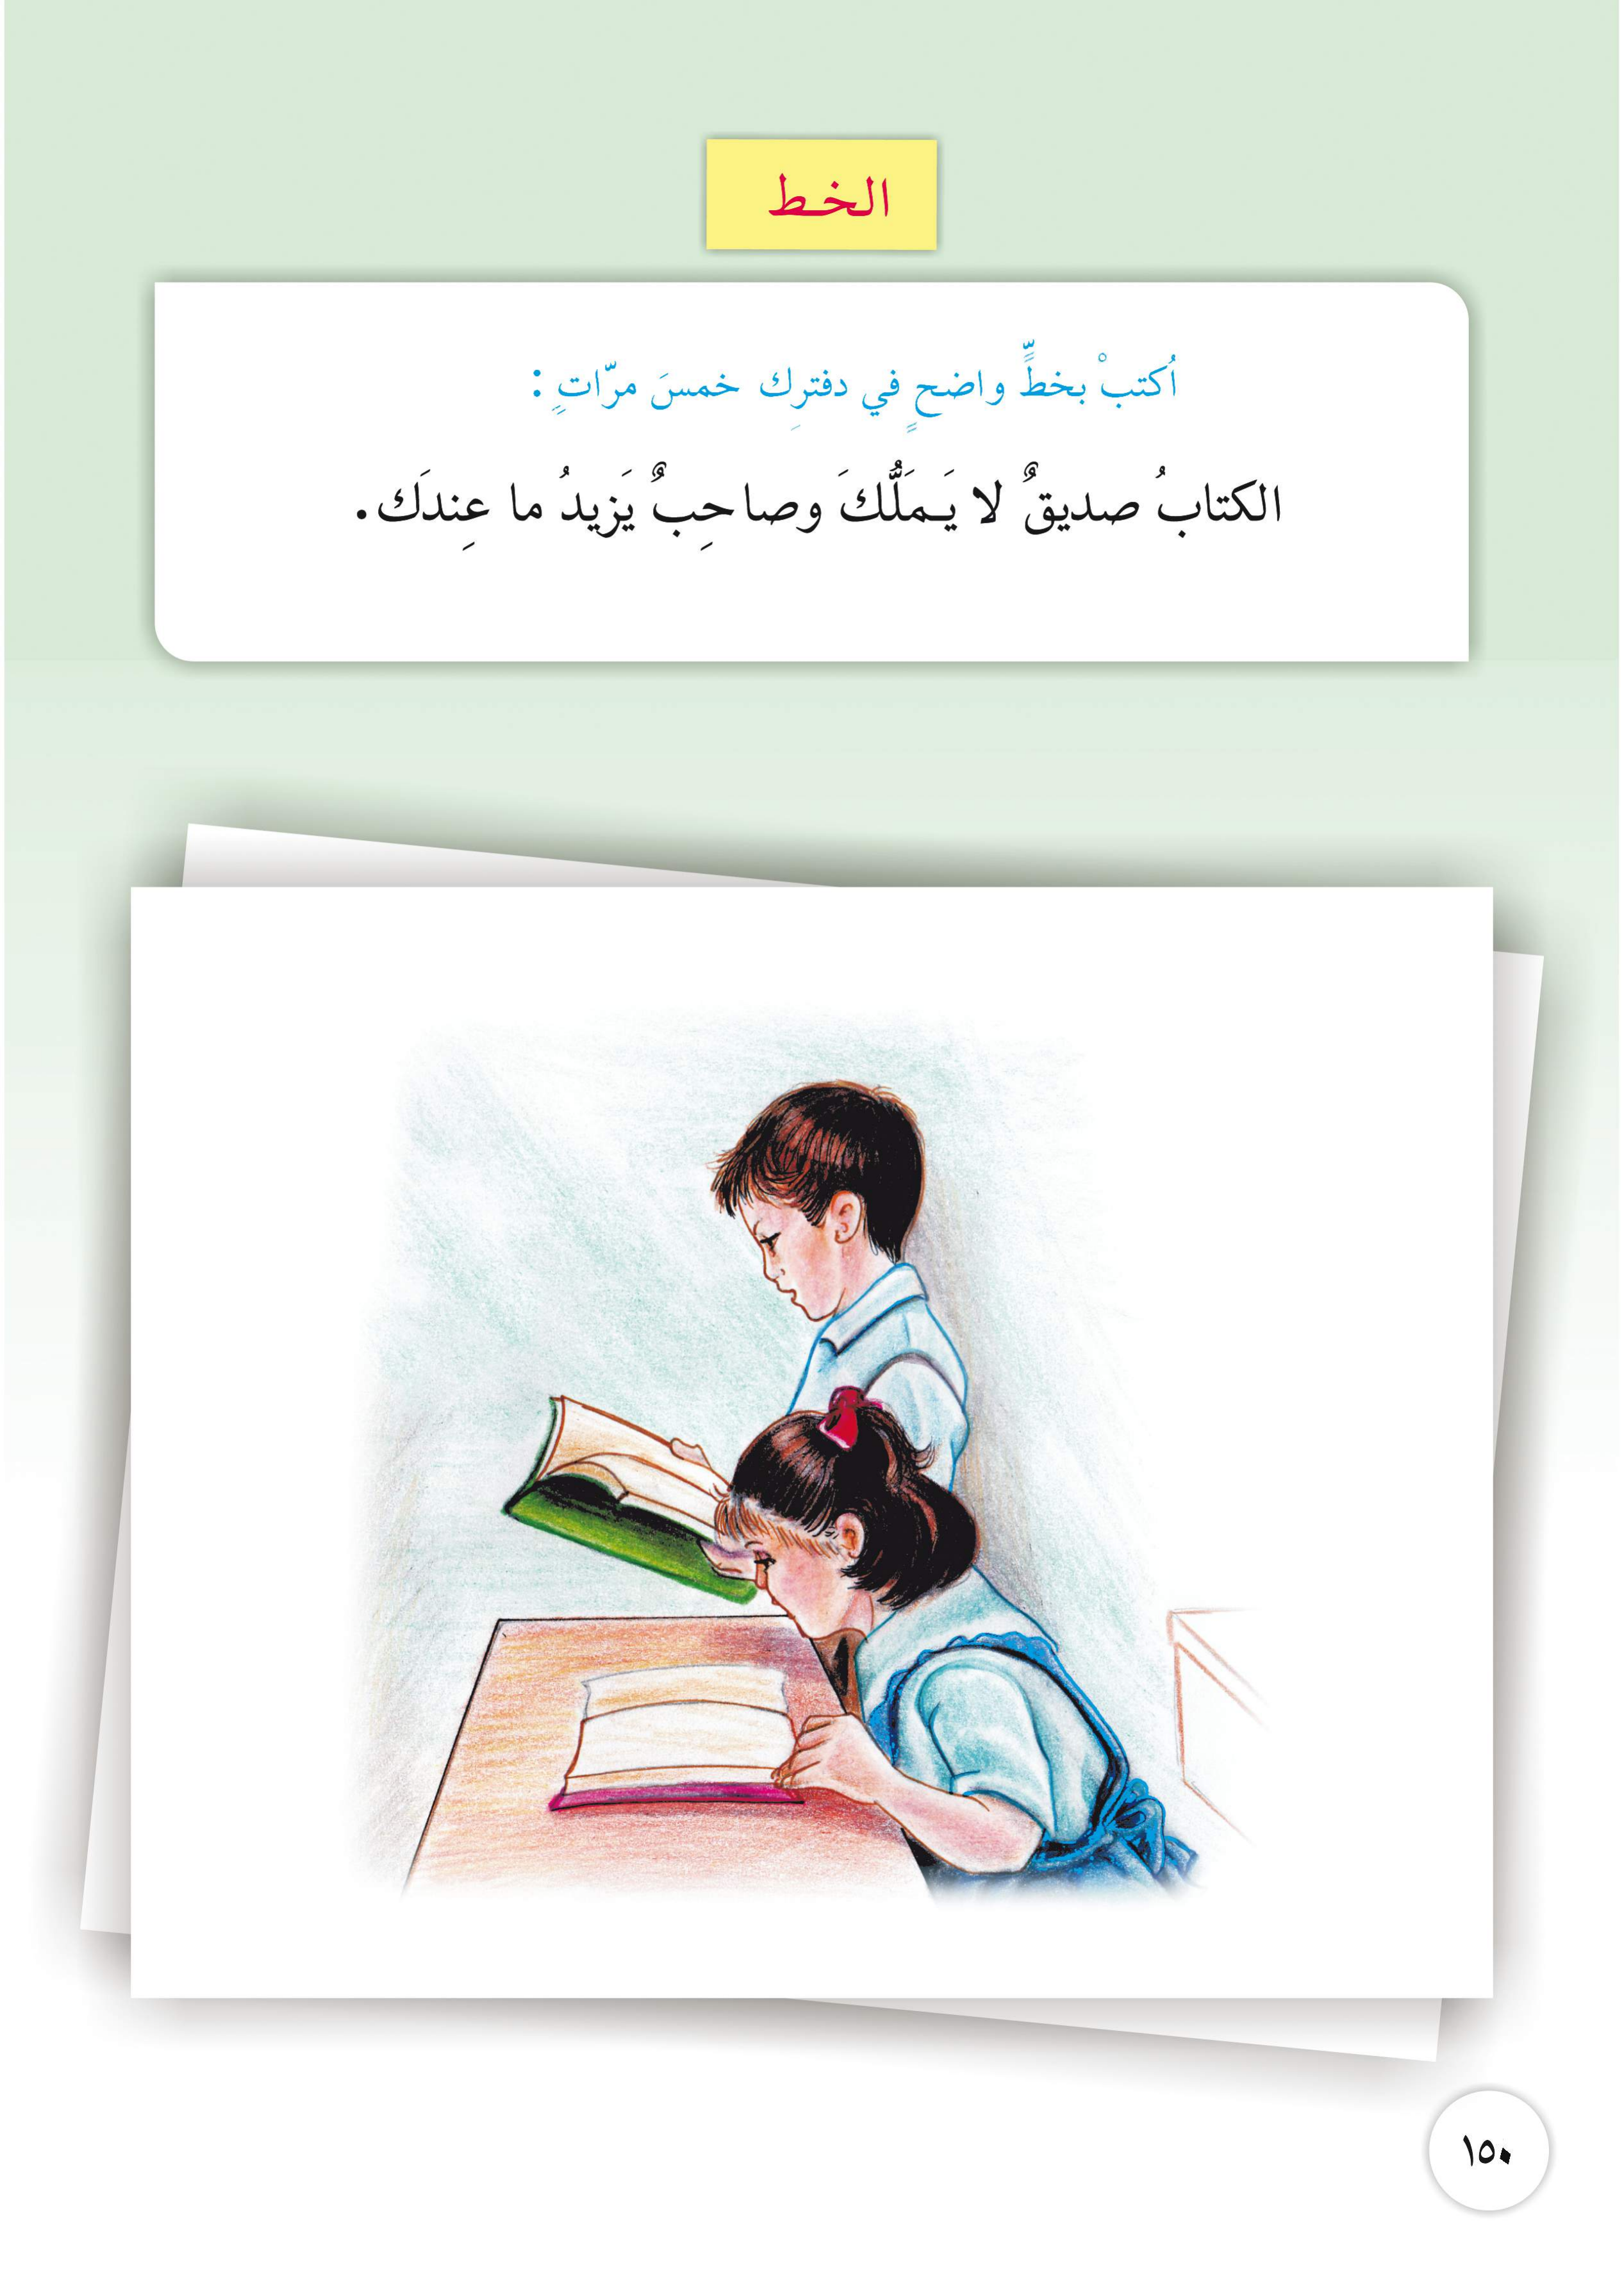 الخط
اُكتبْ بخطٍّ واضحٍ في دفترِك خمسَ مرّاتٍ :
الكتابُ صديقٌ لا يَـملَّكَ وصاحِبٌ يَزيدُ ما عِندَك .
١٥٠